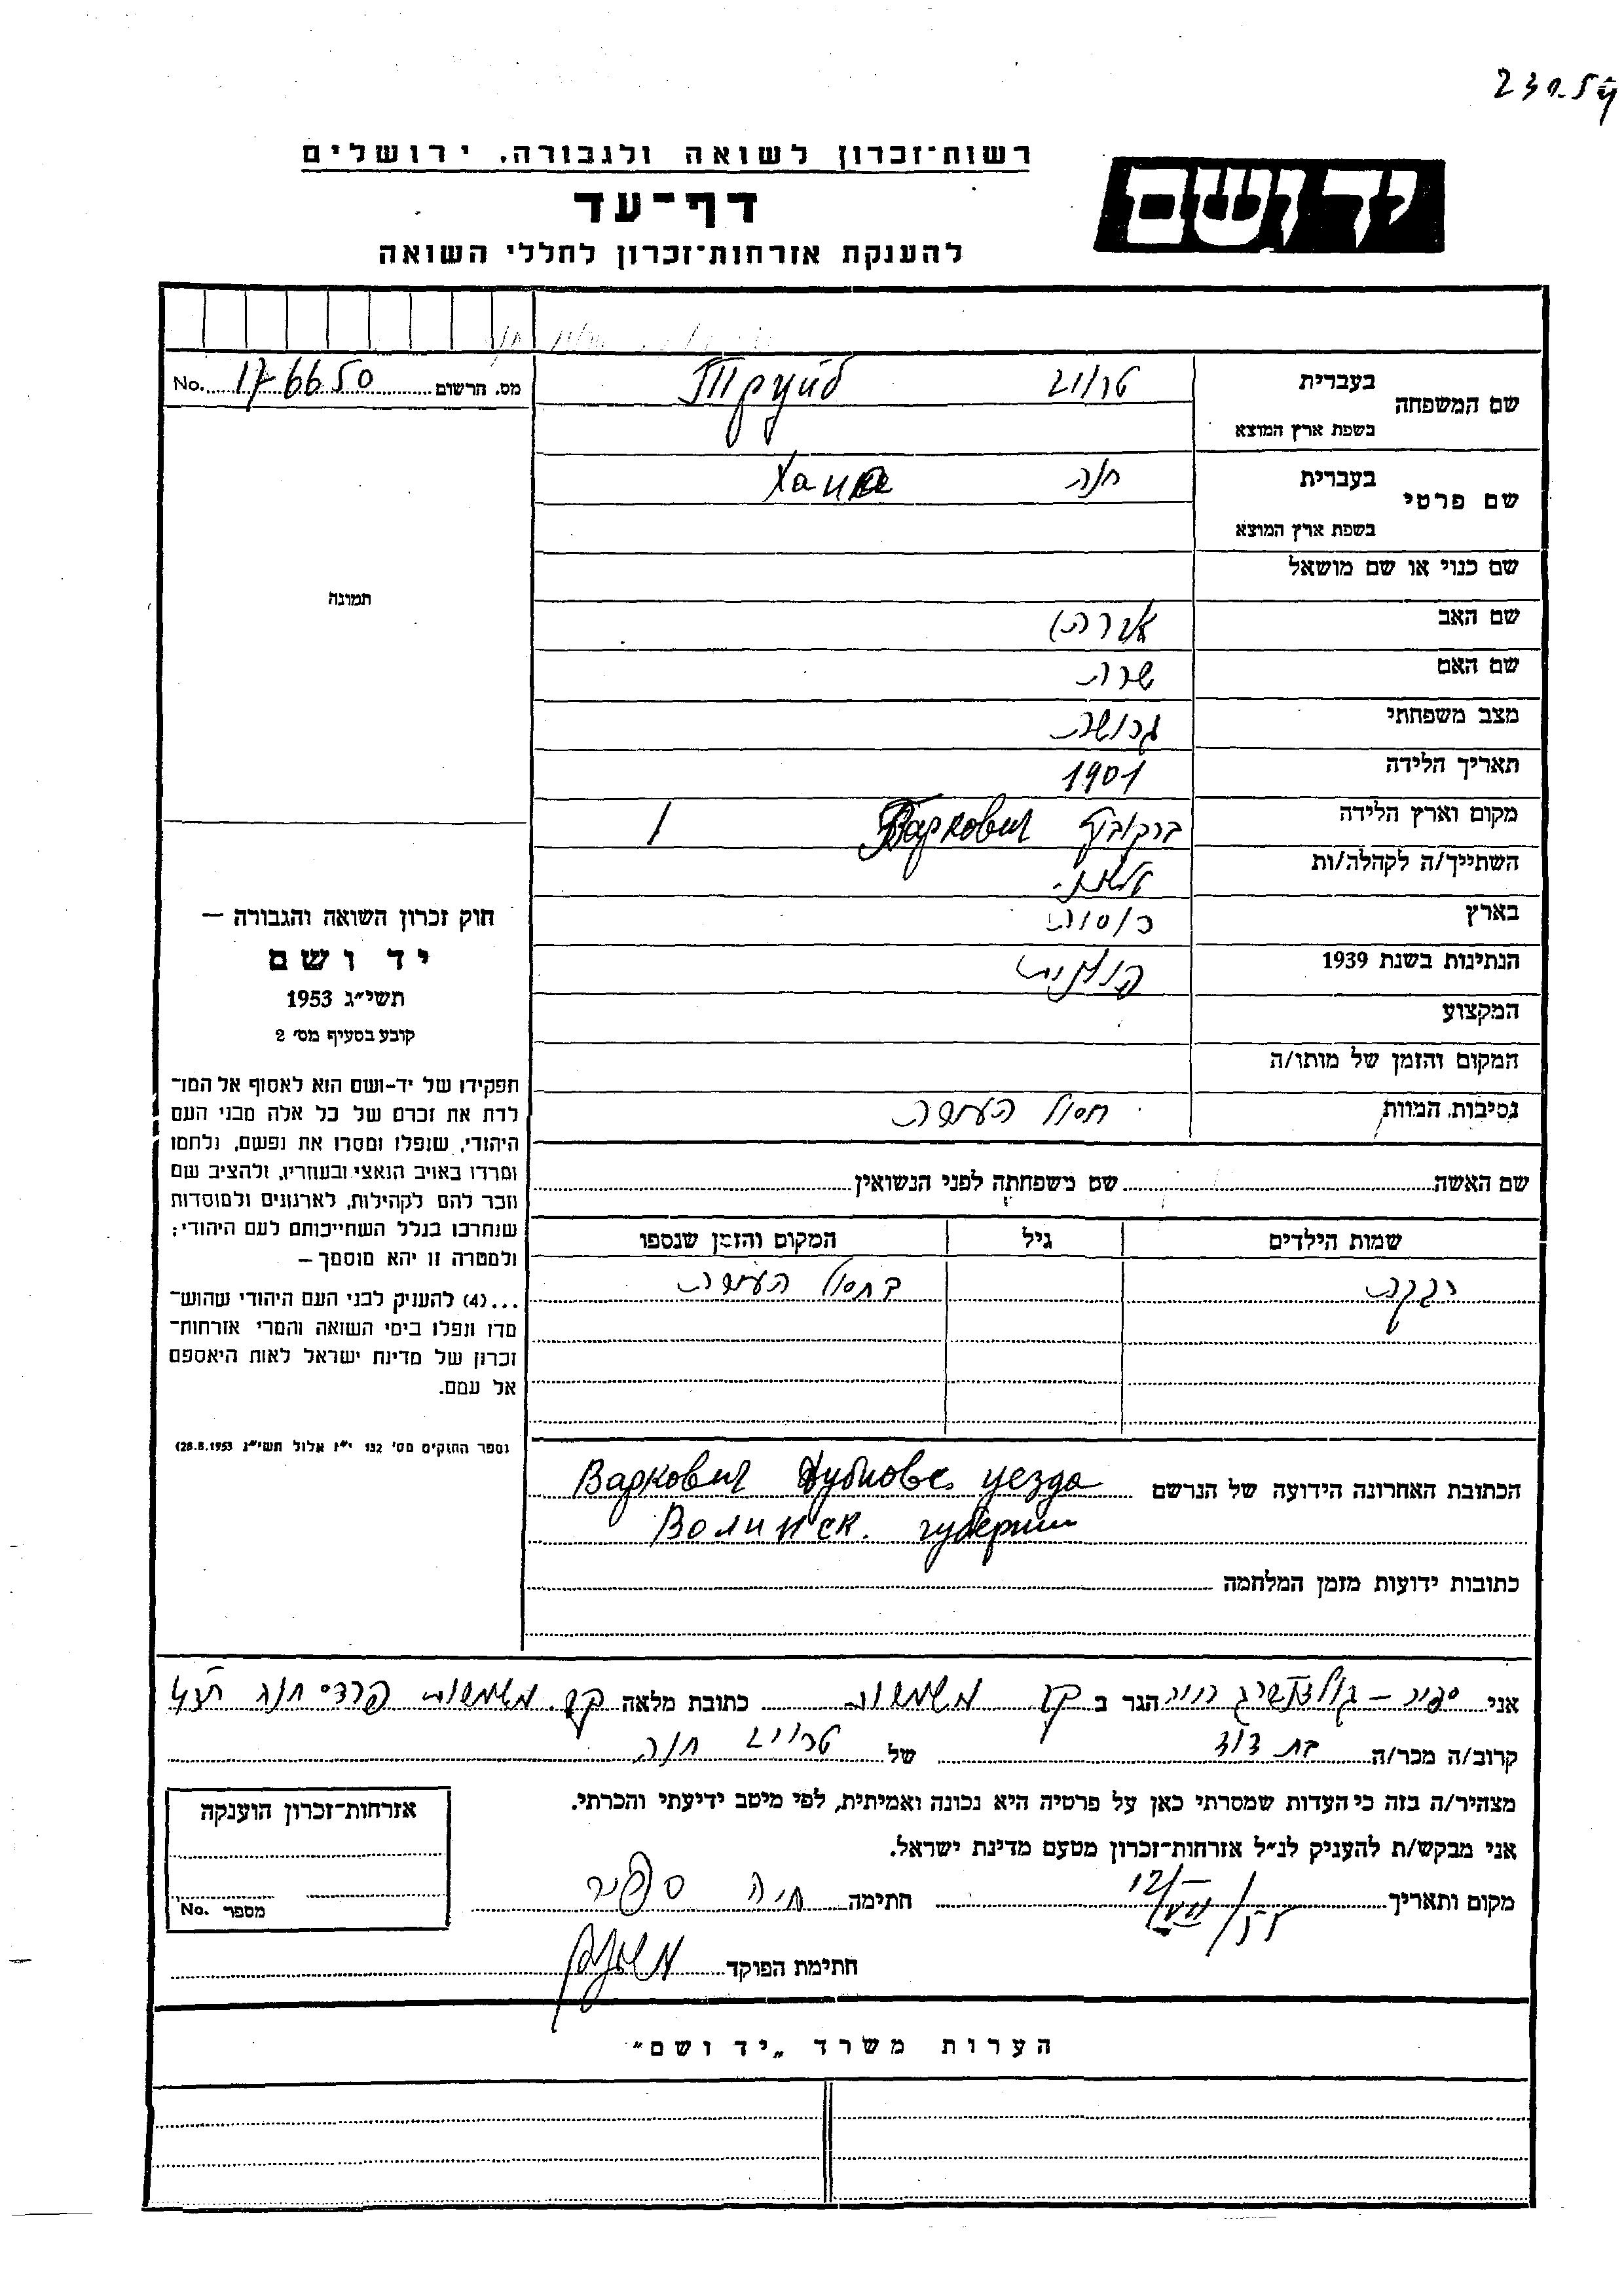 רשות־זכרון לשואה ולגבורה, ירושלים
יד ושם
דף־עד
להענקת אזרחות־זכרון לחללי השואה
No. 176650 מס. הרשום
שם המשפחה
בעברית
Труйб
בשפת ארץ המוצא
שם פרטי
בעברית חנה
בשפת ארץ המוצא
שם כנוי או שם מושאל
שם האב
שם האם שרה
מצב משפחתי גרושה
תאריך הלידה 1901
מקום וארץ הלידהВаркович
השתייך/ה לקהלה/ות
בארץ רוסיה
הנתינות בשנת 1939
המקצוע
המקום והזמן של מותו/ה
נסיבות המוות חסול העיירה
תמונה
חוק זכרון השואה והגבורה —
יד ושם
תשי״ג 1953
קובע בסעיף מס׳ 2
תפקידו של יד-ושם הוא לאסוף אל המו־
לדת את זכרם של כל אלה מבני העם
היהודי, שנפלו ומסרו את נפשם, נלחמו
ומרדו באויב הנאצי ובעוזריו, ולהציב שם
וזכר להם לקהילות, לארגונים ולמוסדות
שנחרבו בגלל השתייכותם לעם היהודי;
ולמטרה זו יהא מוסמך —
...(4) להעניק לבני העם היהודי שהוש־
מדו ונפלו בימי השואה והמרי אזרחות־
זכרון של מדינת ישראל לאות היאספם
אל עמם.
(ספר החוקים מס׳ 132 י״ז אלול תשי״ג 28.8.1953)
שם האשה שם משפחתה לפני הנשואין
שמות הילדים גיל המקום והזמן שנספו
רבקה בחסול העיירה
הכתובת האחרונה הידועה של הנרשם Варкович Дубновс. уезда
Волинск. губернии
כתובות ידועות מזמן המלחמה
אני הגר ב קב. משמרות כתובת מלאה קב. משמרות פרדס חנה
קרוב/ה מכר/ה בת דוד של חנה
מצהיר/ה בזה כי העדות שמסרתי כאן על פרטיה היא נכונה ואמיתית, לפי מיטב ידיעתי והכרתי.
אני מבקש/ת להעניק לנ״ל אזרחות־זכרון מטעם מדינת ישראל.
מקום ותאריך חתימה חיה ספיר
חתימת הפוקד
אזרחות־זכרון הוענקה
No. מספר
הערות משרד „יד ושם״